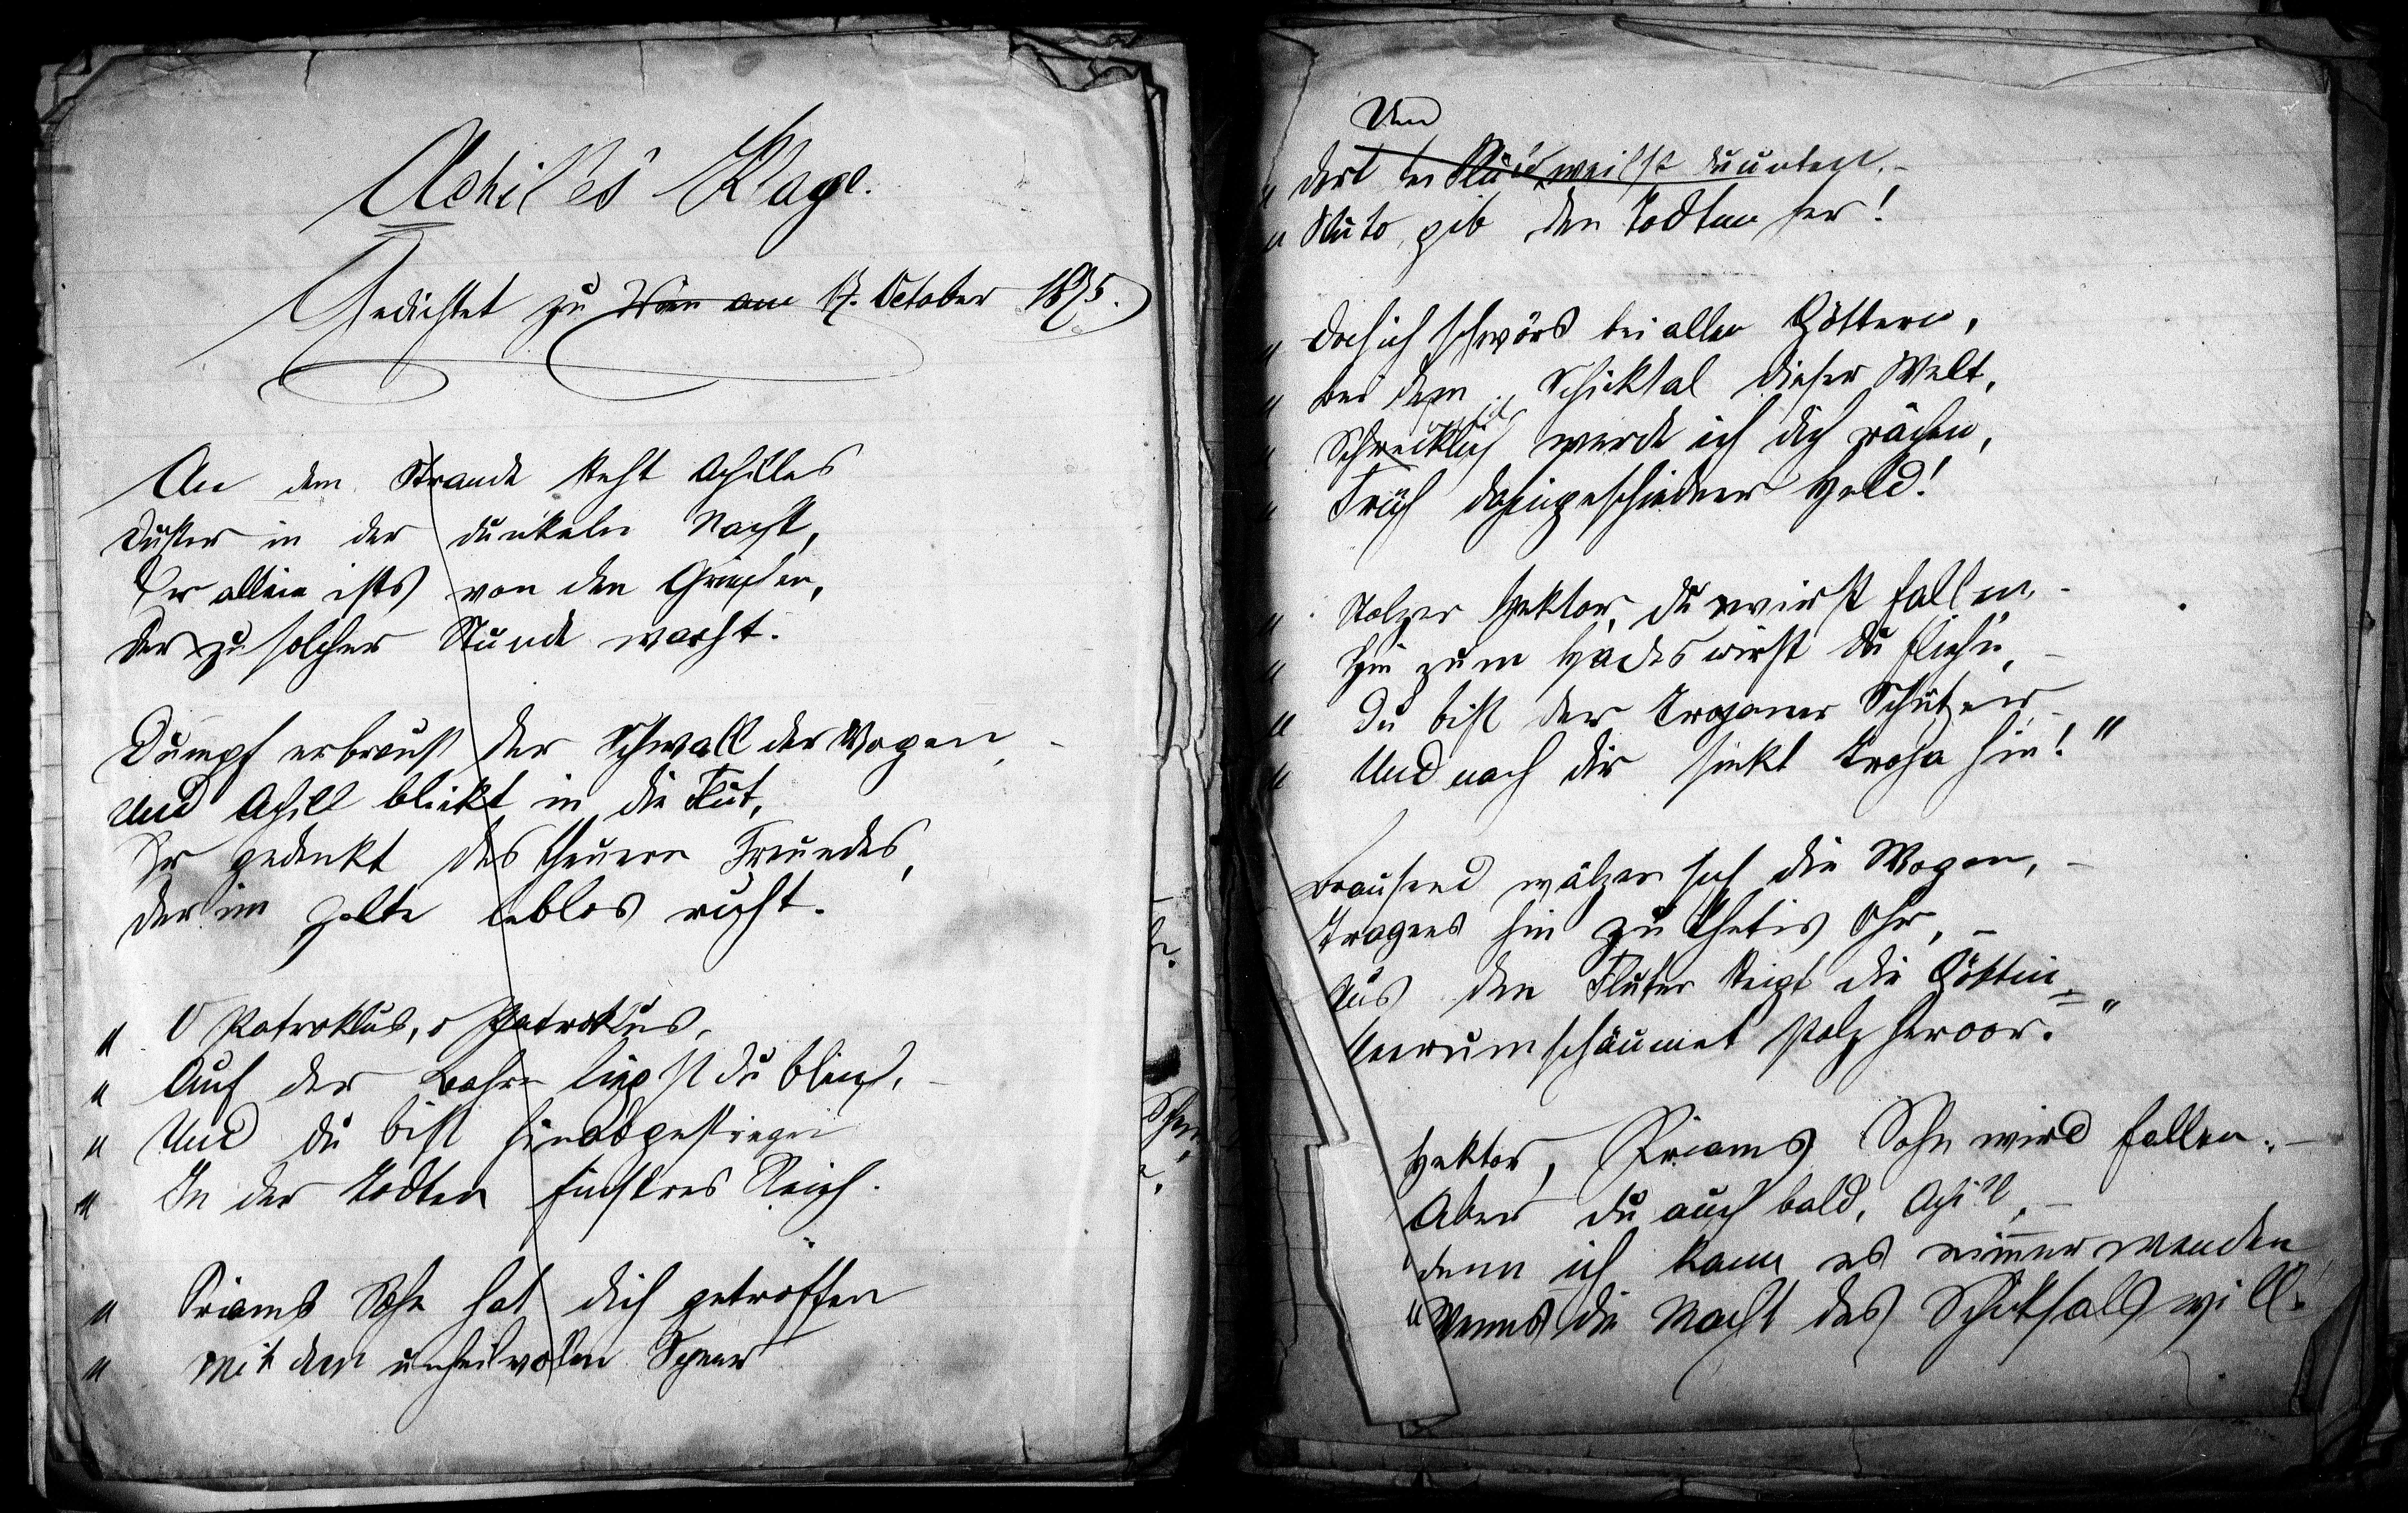 Achill'es Klage.
Gedichtet zu Wien am 17. October 1875.
An dem Strande steht Achilles
Düster in der dunkeln Nacht,
Er allein ists von den Griechen,
Der zu solcher Stunde wacht.
Dumpf erbraust der Schwall der Wogen, –
Und Achill blickt in die Flut,
Er gedenkt des theuern Freundes,
Der im Zelte leblos ruht.
„ O Patroklus, o Patroklus,
„ Auf der Bahre liegst du bleich, –
„ Und du bist hinabgestiegen
„ In der Todten finstres Reich.
„ Priams Sohn hat dich getroffen
„ Mit dem unheilvollen Speer
Und
„ dort bei weilst du unten, –
„ Pluto, gib den Todten her!
„ Doch ich schwörs bei allen Göttern,
„ Bei dem Schicksal dieser Welt,
„ Schrecklich werde ich dich rächen,
„ Früh dahingeschiedner Held!
„ Stolzer Hektor, du wirst fallen, –
„ Hin zum Hades wirst du fliehn, –
„ Du bist der Trojaner Schützer –
„ Und nach dir sinkt Troja hin! "
Brausend wälzen sich die Wogen, –
Tragens hin zu Thetis Ohr, –
Aus den Fluten steigt die Göttin
Meerumschäumet stolz hervor.
„ Hektor, Priams Sohn wird fallen, –
Aber du auch bald, Achill, –
„ denn ich kann es nimmer wenden
„ Wenns die Macht des Schicksals will.